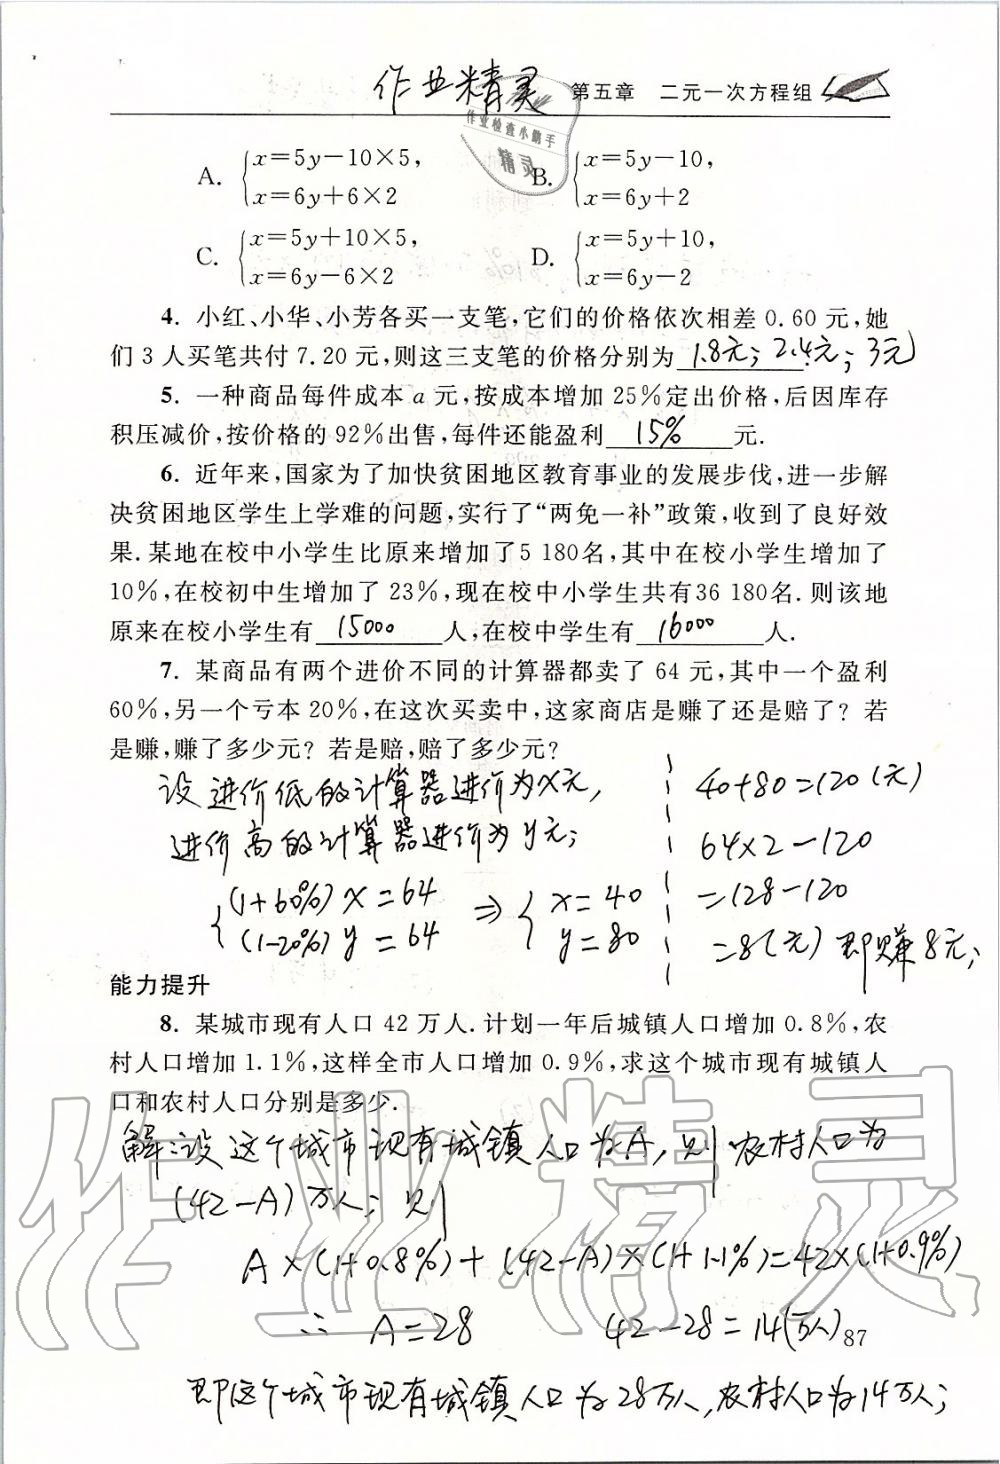 作业精灵 第五章 二元一次方程组
作业检查小助手
精灵
A. {x=5y-10×5, x=6y+6×2 B. {x=5y-10, x=6y+2
C. {x=5y+10×5, x=6y-6×2 D. {x=5y+10, x=6y-2
4. 小红、小华、小芳各买一支笔,它们的价格依次相差 0.60 元,她
们 3 人买笔共付 7.20 元,则这三支笔的价格分别为 1.8元; 2.4元; 3元.
5. 一种商品每件成本 a 元,按成本增加 25%定出价格,后因库存
积压减价,按价格的 92%出售,每件还能盈利 15% 元.
6. 近年来,国家为了加快贫困地区教育事业的发展步伐,进一步解
决贫困地区学生上学难的问题,实行了“两免一补”政策,收到了良好效
果.某地在校中小学生比原来增加了5 180名,其中在校小学生增加了
10%,在校初中生增加了 23%,现在校中小学生共有36 180名.则该地
原来在校小学生有 15000 人,在校中学生有 16000 人.
7. 某商品有两个进价不同的计算器都卖了 64 元,其中一个盈利
60%,另一个亏本 20%,在这次买卖中,这家商店是赚了还是赔了? 若
是赚,赚了多少元? 若是赔,赔了多少元?
设进价低的计算器进价为x元,
进价高的计算器进价为y元;
{(1+60%)x=64 (1-20%)y=64 ⇒ {x=40 y=80
40+80=120(元)
64×2-120
=128-120
=8(元) 即赚8元;
能力提升
8. 某城市现有人口 42 万人.计划一年后城镇人口增加 0.8%,农
村人口增加 1.1%,这样全市人口增加 0.9%,求这个城市现有城镇人
口和农村人口分别是多少.
解:设这个城市现有城镇人口为A,则农村人口为
(42-A)万人;则
A×(1+0.8%)+(42-A)×(1+1.1%)=42×(1+0.9%)
∴ A=28 42-28=14(万人)
87
即这个城市现有城镇人口为28万人,农村人口为14万人;
作业精灵